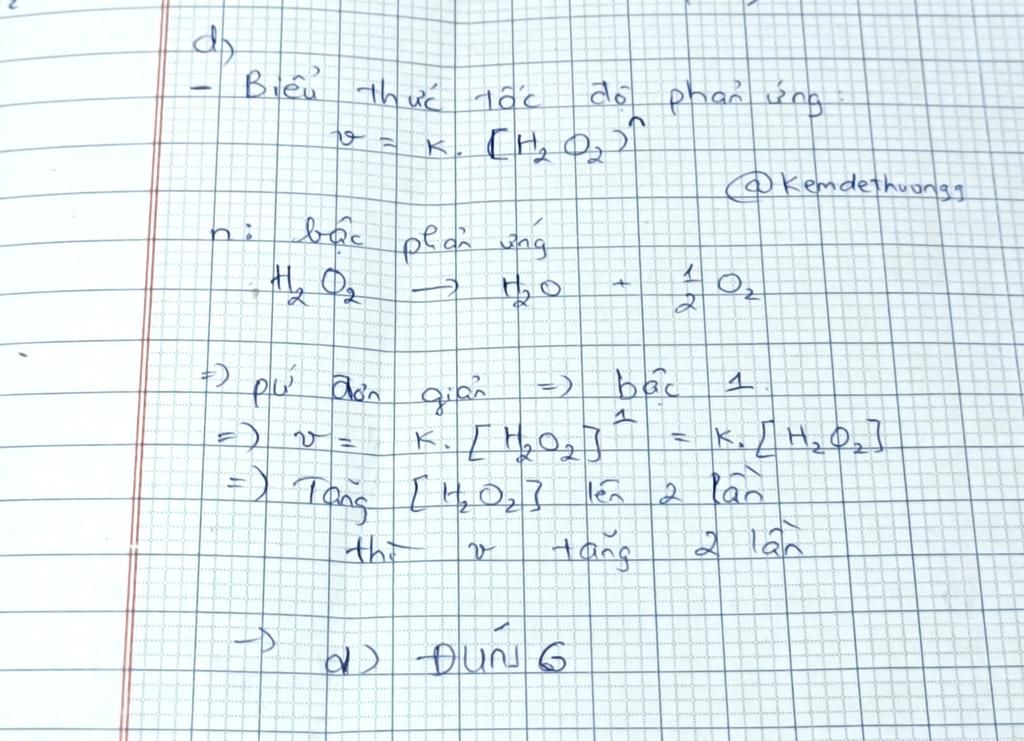 d)
- Biểu thức tốc độ phản ứng:
v = k. [H₂O₂)ⁿ
@Kemdethuongg
n: bậc phản ứng
H₂O₂ → H₂O + 1/2 O₂
=> pứ đơn giản => bậc 1.
=> v = k. [H₂O₂]¹ = k. [H₂O₂]
=> Tăng [H₂O₂] lên 2 lần
thì v tăng 2 lần
→ d) ĐÚNG